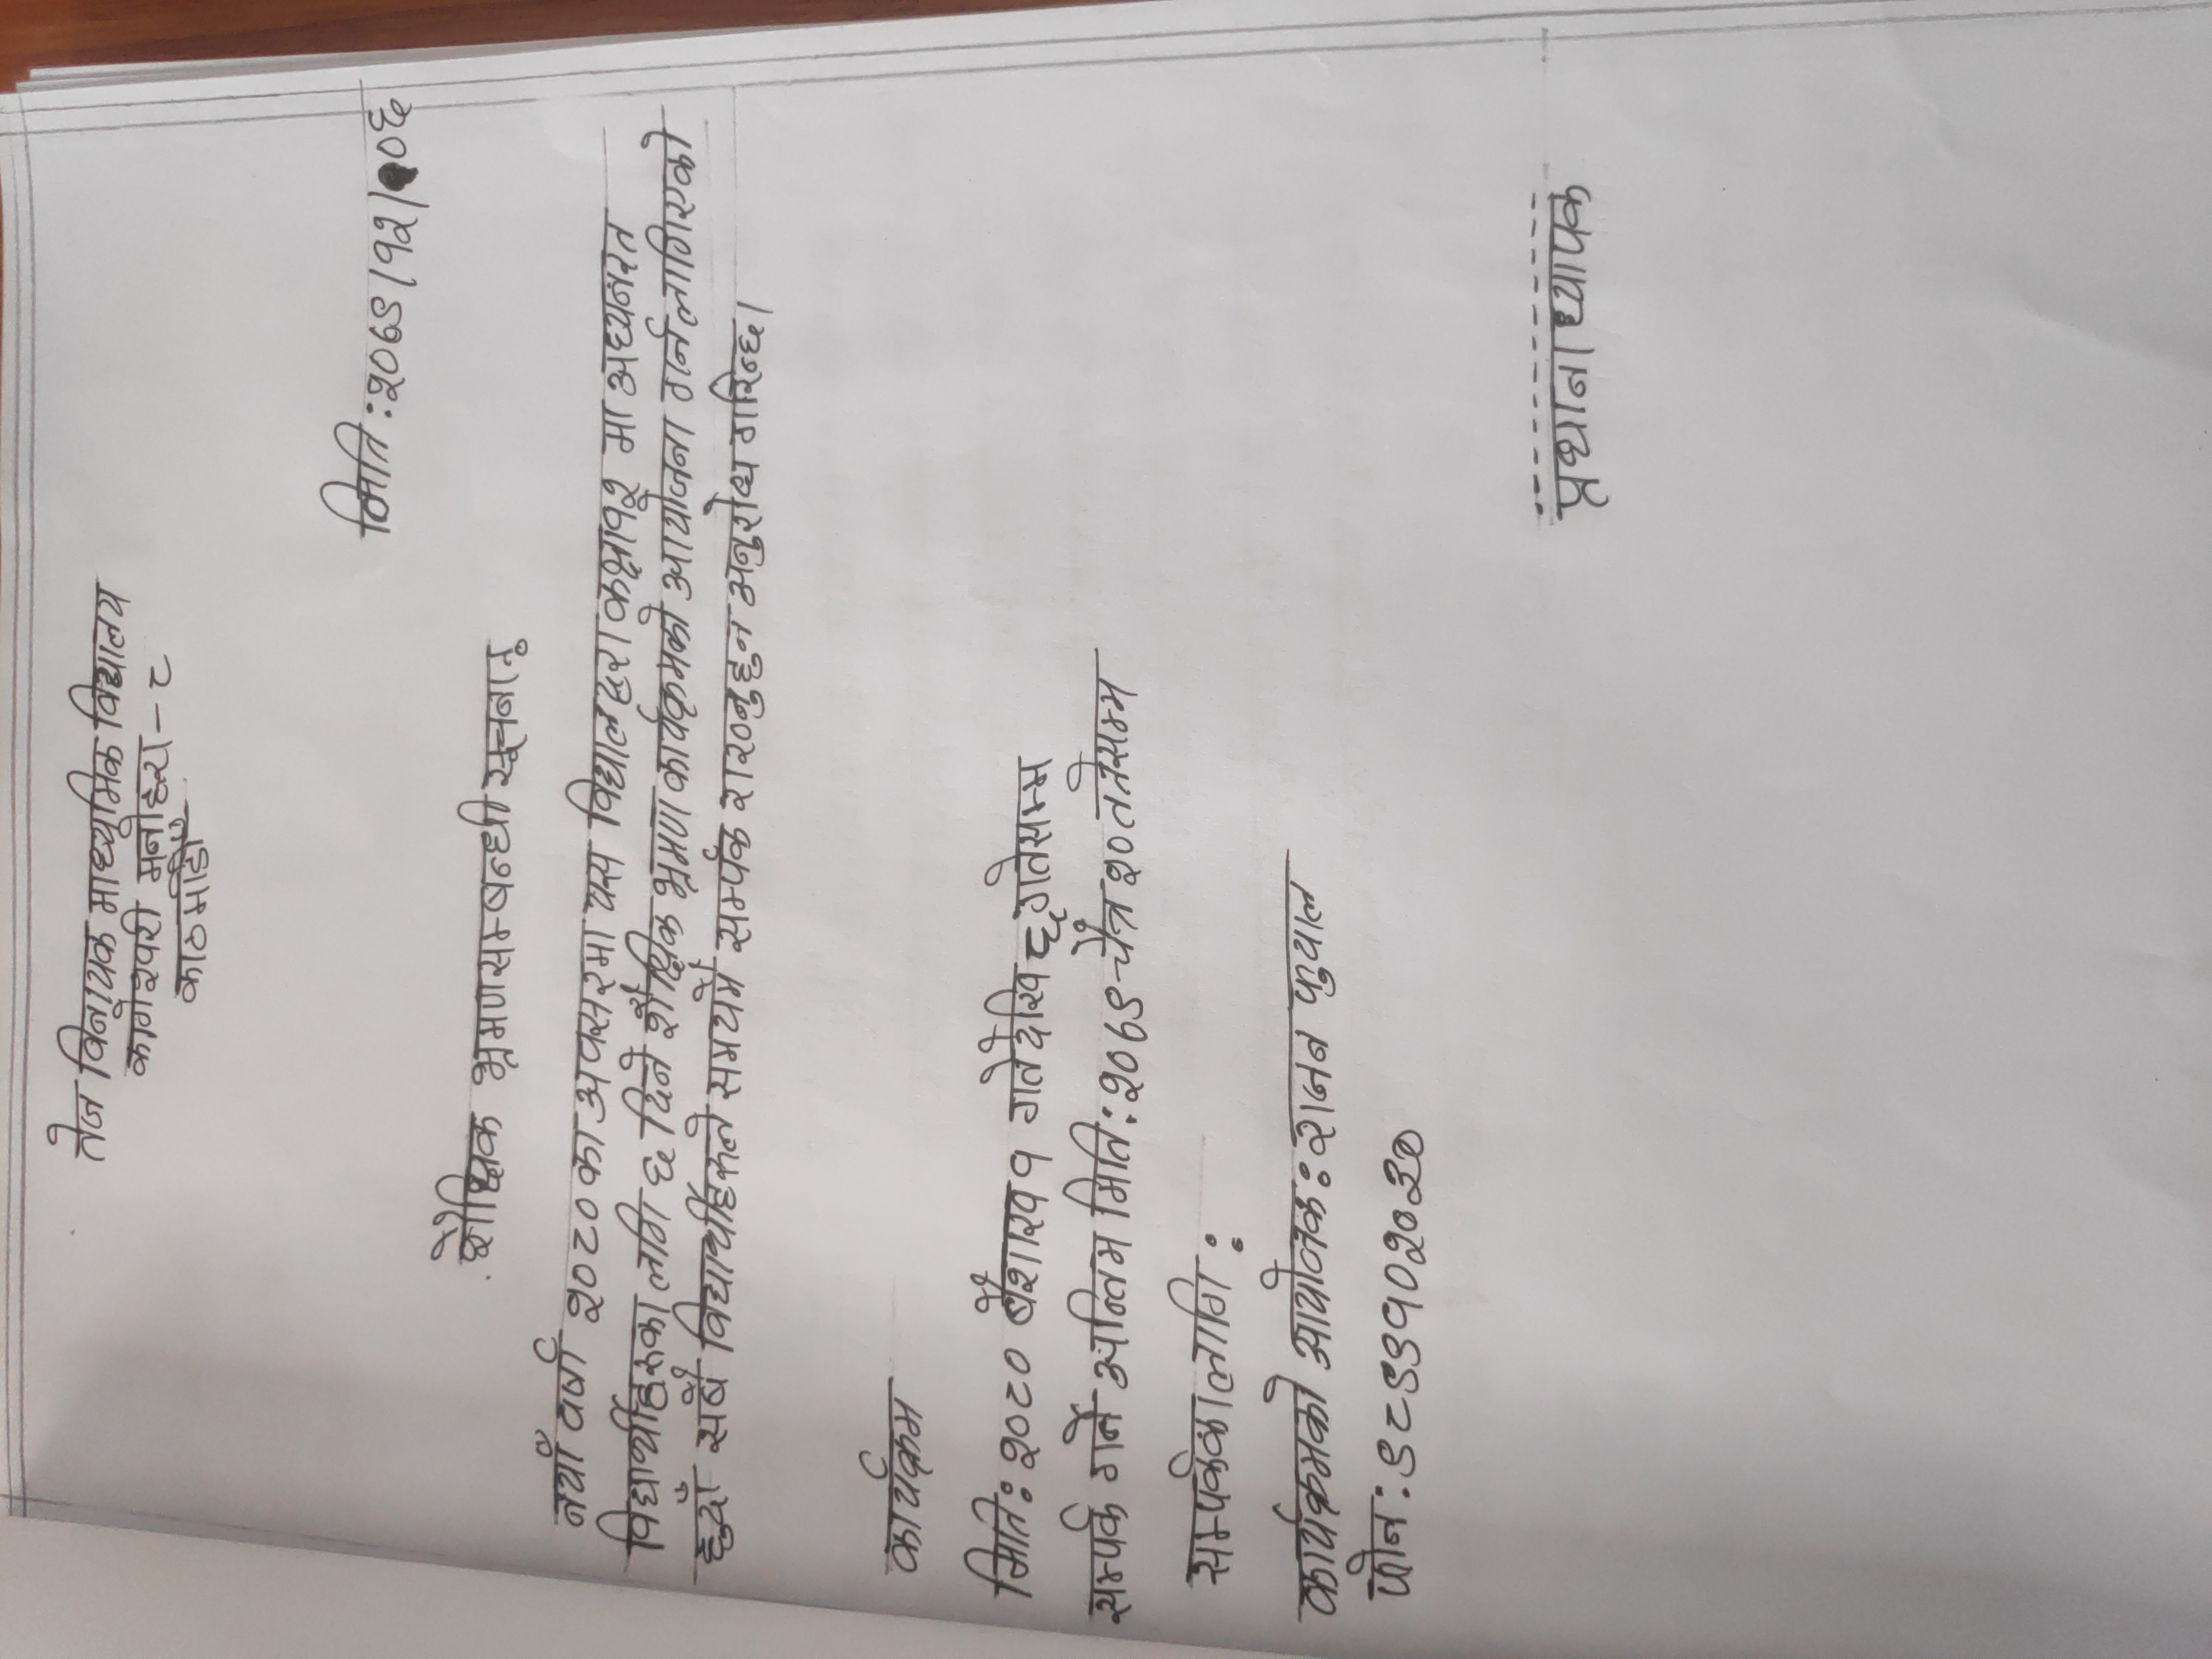 तेज विनायक माध्यमिक विद्यालय
कागेश्वरी मनोहरा - ८
काठमाडौँ
मिति : २०७९/१२/०६
शैक्षिक भ्रमणसम्बन्धी सूचना
नयाँ वर्ष २०८० का अवसरमा यस विद्यालद्वारा कक्षा १२ मा अध्यनरत
विद्यार्थीहरूका लागि ६ दिने शैक्षिक भ्रमण कार्यक्रमको आयोजना गर्न लागिएको
हुदाँ सबै विद्यार्थीहरुले समयमै सम्पर्क राख्नुहुन अनुरोध गरिन्छ।
कार्यक्रम
मिति: २०८० बैशाख १ गतेदेखि ६ गतेसम्म
सम्पर्क गर्ने अन्तिम मिति: २०७९ चैत्र २० ततेसम्म
सम्पर्कका लागि :
कार्यक्रमको आयोजक: राजन फुयाल
फोन: ९८९९१०२०३०
प्रधानाध्यापक